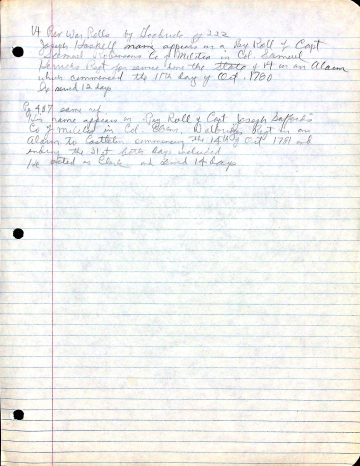 Vt Rev War Rolls by Goodrich pg 222
Joseph Haskell name appears on a Pay Roll of Capt
Samuel Robinsons Co of Militia in Col Samuel
Herricks Regt for service done the State of in an Alarm
which commenced the 11th day of Oct. 1780
served 12 days
Pg 487 same ref
His name appears on Pay Roll of Capt Joseph Saffords
Co of Militia in Col. Eben. Walbridges Regt in an
Alarm to Castleton commencing the 14th of Oct 1781 and
ending the 31st both days included
He acted as Clerk and served 14 days